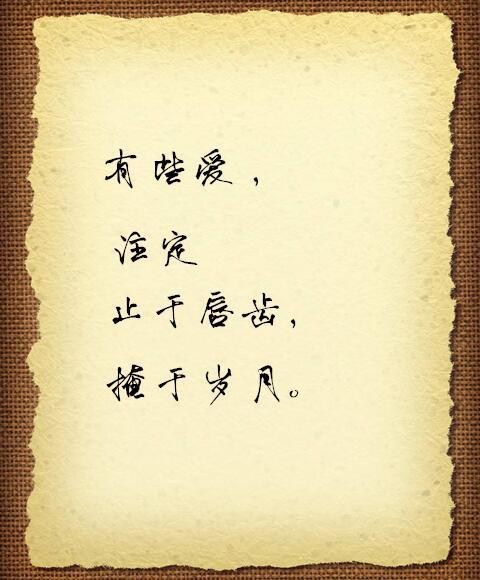 有些爱，
注定
止于唇齿，
掩于岁月。